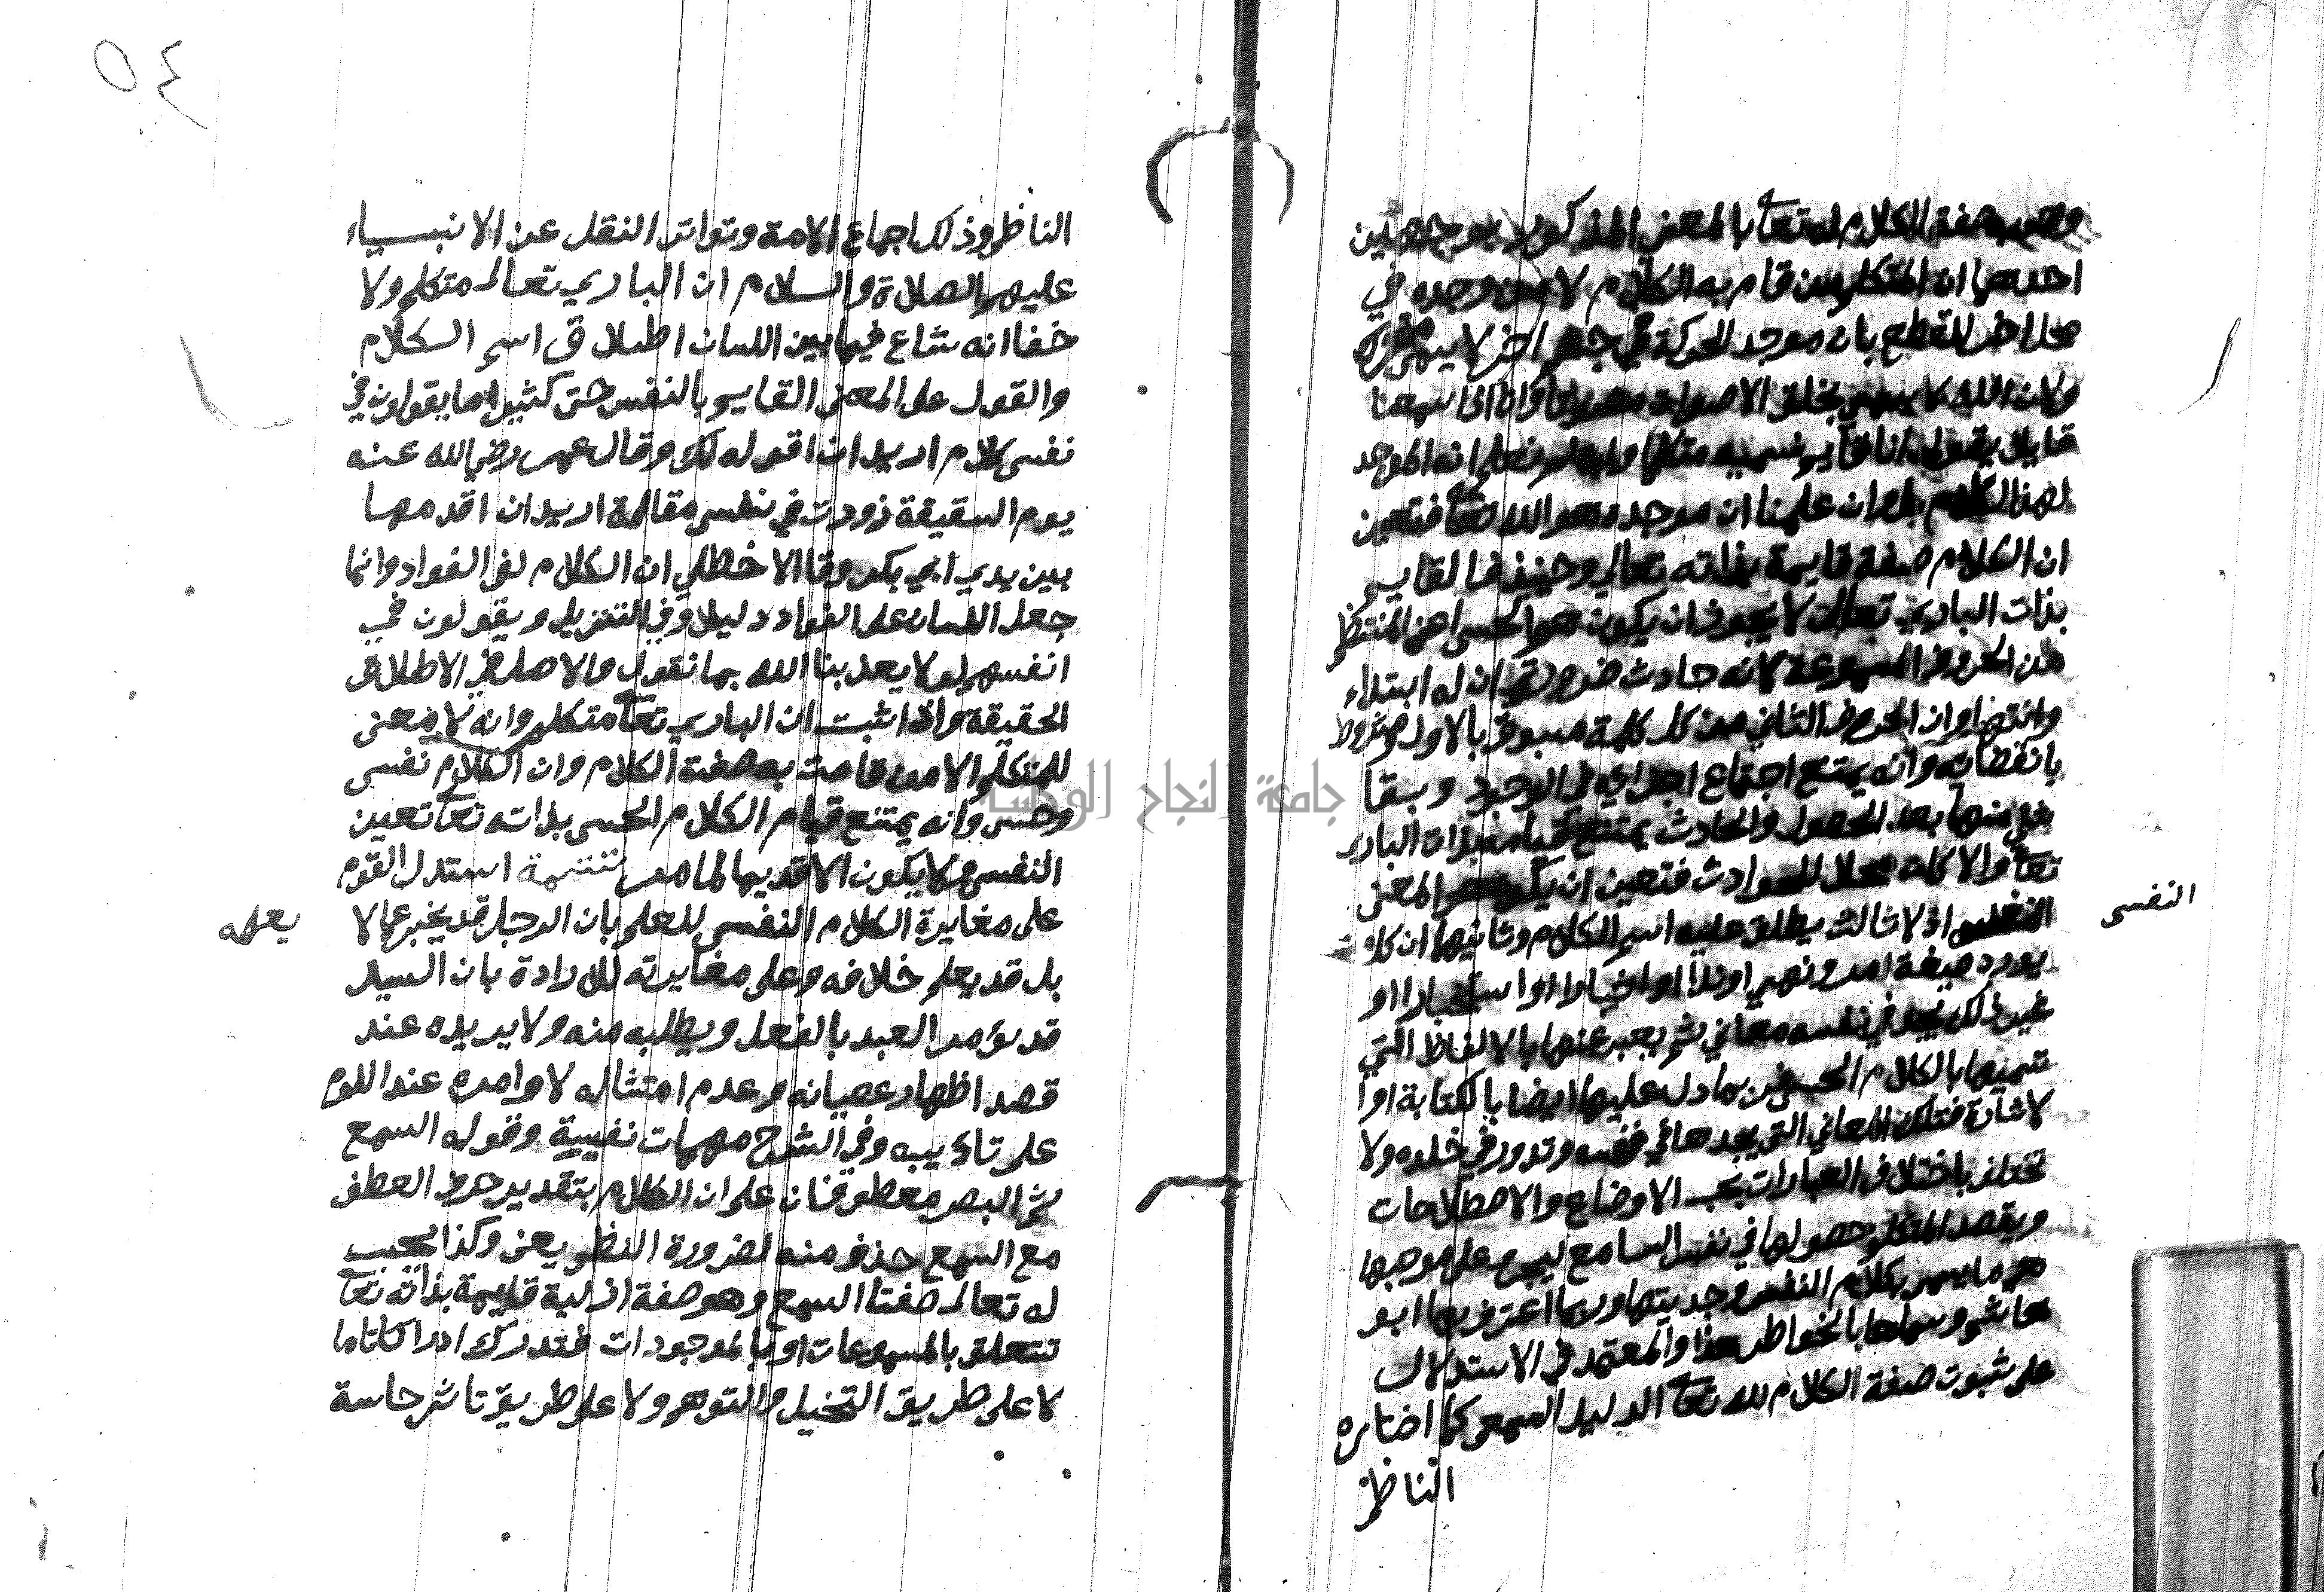 وجوب صفة الكلام له تعا بالمعنى المذكور بوجهين
احدهما ان المتكلم من قام به الكلام لا من وجده في
محل اخر للقطع بان موجد الحركة في جسم اخر لا يسمى متحركا
ولان الله لا يسمى بخلق الاصوات مصوتا وانا اذا سمعنا
قايلا يقول انا قايم نسميه متكلما وان لم نعلم انه الموجد
لهذا الكلام بل وان علمنا ان موجده هو الله تعا فتعين
ان الكلام صفة قايمة بذاته تعالى وحينيذ فالقايم
بذات الباري تعالى لا يجوز ان يكون هو الحسي اعني المنتظم
من الحروف المسموعة لانه حادث ضرورة ان له ابتداء
وانتها وان الحرف الثاني من كل كلمة مسبوق بالاول ومشروط
بانقضائه وانه يمتنع اجتماع اجزايه في الوجود وبقا
شي منها بعد الحصول والحادث يمتنع قيامه بذات الباري
تعا والا كان محلا للحوادث فتعين ان يكون هو المعنى
النفسي
اذ لا ثالث يطلق عليه اسم الكلام وثانيهما ان كل من
يورد صيغة امر ونهي او ندا او اخبار او استخبار او
غير ذلك يجد في نفسه معاني ثم يعبر عنها بالالفاظ التي
نسميها بالكلام الحسي وربما دل عليها ايضا بالكتابة او ا
لاشارة فتلك المعاني التي يجدها في نفسه وتدور في خلده ولا
تختلف باختلاف العبارات بحسب الاوضاع والاصطلاحات
ويقصد المتكلم حصولها في نفس السامع ليجري على موجبها
هي ما يسمى بكلام النفس وحديثها وربما اعترف بها ابو
هاشم وسماها بالخواطر هذا والمعتمد في الاستدلال
على ثبوت صفة الكلام لله تعا الدليل السمعي كما اختاره
الناظم
٥٤
الناظم وذلك اجماع الامة وتواتر النقل عن الانبياء
عليهم الصلاة والسلام ان الباري تعالى متكلم ولا
خفا انه شاع فيما بين اللسان اطلاق اسم الكلام
والقول على المعنى القايم بالنفس حتى كثيرا ما يقولون في
نفسي كلام اريد ان اقوله لك وقال عمر رضي الله عنه
يوم السقيفة زورت في نفسي مقالة اريد ان اقدمها
بين يدي ابي بكر وقال الاخطل ان الكلام لفي الفواد وانما
جعل اللسان على الفواد دليلا وفي التنزيل ويقولون في
انفسهم لولا يعذبنا الله بما نقول والاصل في الاطلاق
الحقيقة واذا ثبت ان الباري تعا متكلم وانه لا معنى
للمتكلم الا من قامت به صفة الكلام وان الكلام نفسي
وحسي وانه يمتنع قيام الكلام الحسي بذاته تعا تعين
النفسي ولا يكون الا قديما لما مر تتمة استدل القوم
على مغايرة الكلام النفسي للعلم بان الرجل قد يخبر عما لا
يعلمه
بل قد يعلم خلافه وعلى مغايرته للارادة بان السيد
قد يؤمر العبد بالفعل ويطلبه منه ولا يريده عند
قصد اظهار عصيانه وعدم امتثاله لاوامره عند اللوم
على تاديبه وفي الشرح مهمات نفيسة وقوله السمع
ثم البصر معطوفان على ان الكلام بتقدير حرف العطف
مع السمع حذف منه لضرورة النظم يعني وكذا يجب
له تعالى صفتا السمع وهو صفة ازلية قايمة بذاته تعا
تتعلق بالمسموعات او بالموجودات فتدرك ادراكا تاما
لا على طريق التخيل والتوهم ولا على طريق تاثر حاسة
جامعة النجاح الوطنية